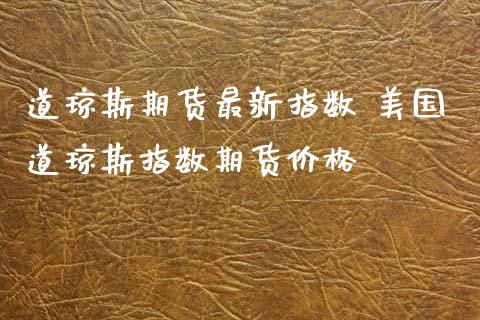 道琼斯期货最新指数 美国
道琼斯指数期货价格